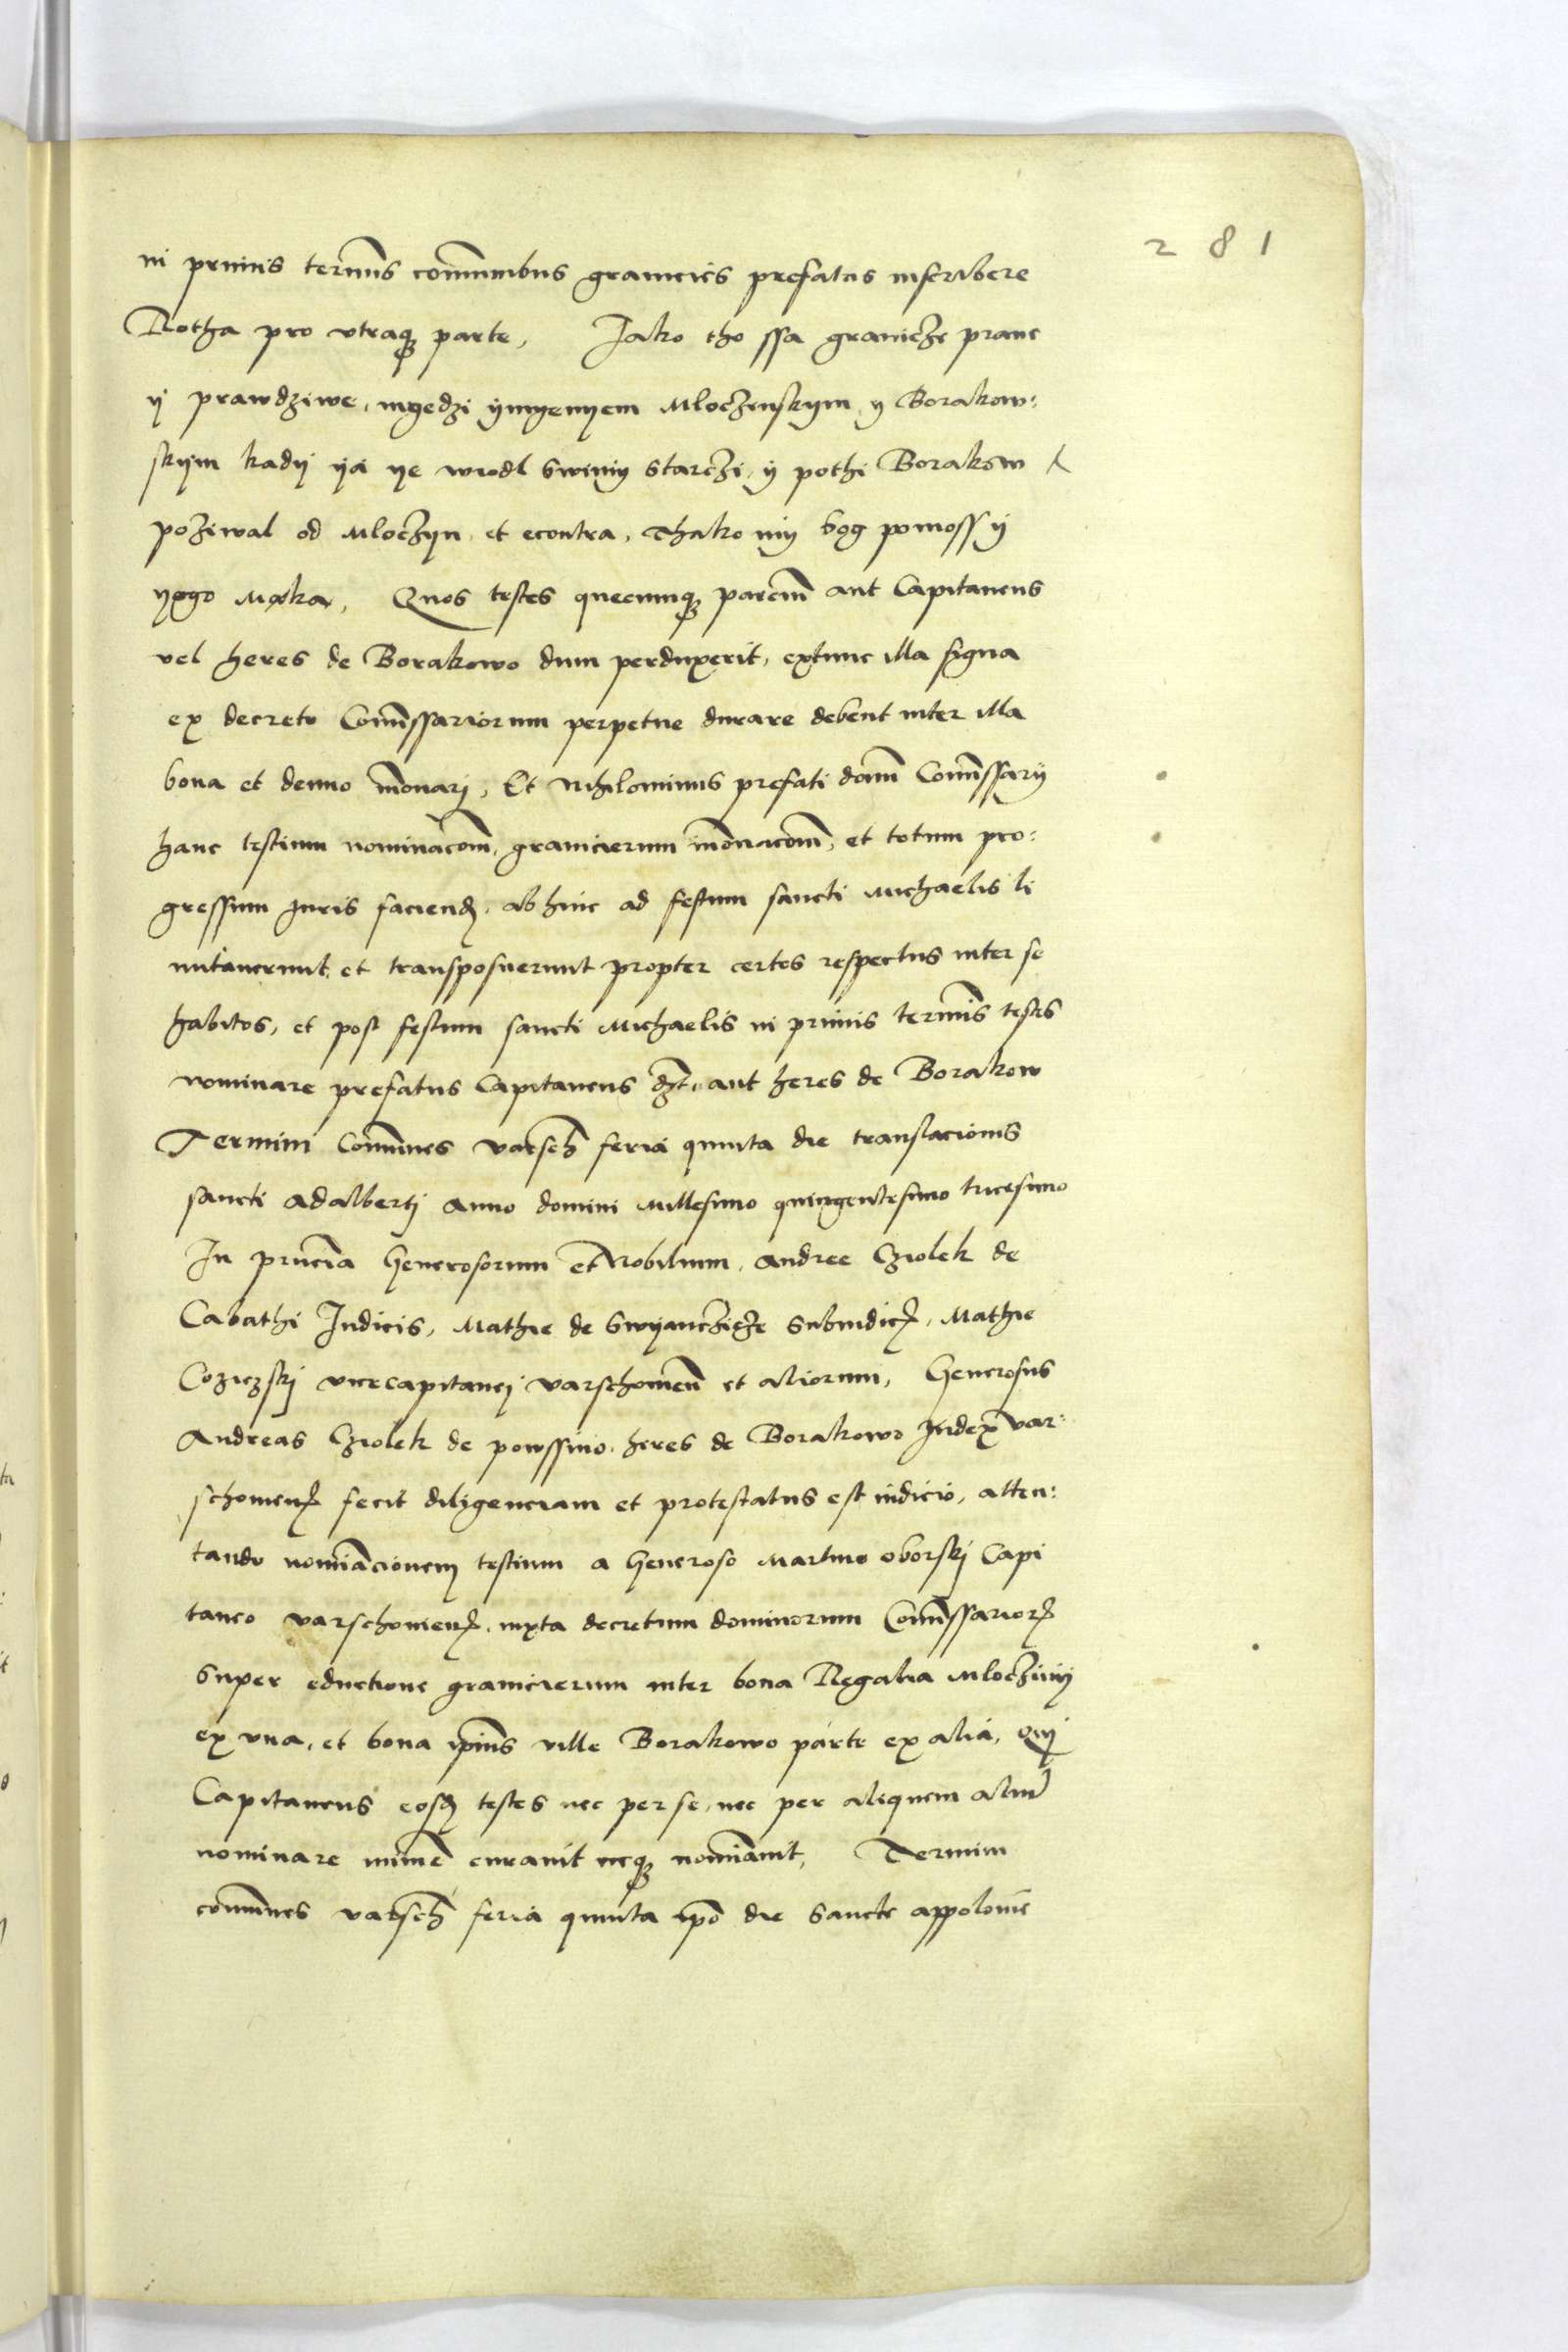 281
in primis terminis communibus granicies prefatas inscribere
Rotha pro vtraque parte, Jako tho ssa graniche prave
ij prawdziwe, mgedzi ymyenyem Mlochenskym y Borakow:
skym kadij ija ije wiodl swimy starchi, y pothi Borakow
pozÿwal od Mlochyn, et econtra, Thako mij bog pomoss ij
yego Mąka, Quos testes quecumque parcium aut Capitaneus
vel heres de Borakowo dum perduxerit, extunc illa signa
ex decreto Comissariorum perpetue durare debent inter illa
bona et denuo innouarj, Et nihilominus prefati domini Comissarij
hanc testium nominacionem, granicierum innouacionem, et totum pro:
gressum iuris faciendum, ab hinc ad festum sancti Michaelis li
mitauerunt et transposuerunt propter certos respectus inter se
habitos, et post festum sancti Michaelis in primis terminis testes
nominare prefatus Capitaneus debet, aut heres de Borakow
Termini Communes varsch feria quinta die translacionis
sancti Adalbertj Anno domini Millesimo quingentesimo tricesimo
In presencia Generosorum et Nobilium, Andree Cziolek de
Cabathi Judicis, Mathie de Swyanchiche Subiudicis, Mathie
Coziczskj vicecapitanej varschouiensis et aliorum, Generosus
Andreas Cziolek de powssino, heres de Borakowo Judex var:
schouiensis fecit diligenciam et protestatus est iudicio, atten:
tando nominacionem testium a Generoso Martino oborskj Capi
taneo varschouiensi, iuxta decretum dominorum Comissariorum
super eductione granicierum inter bona Regalia Mlochinij
ex vna, et bona ipsius ville Borakowo parte ex alia, Qui
Capitaneus eosdem testes nec per se, nec per aliquem alium
nominare minime curauit neque nominauit, Termini
communes varsch feria quinta ipso die Sancte appolonie